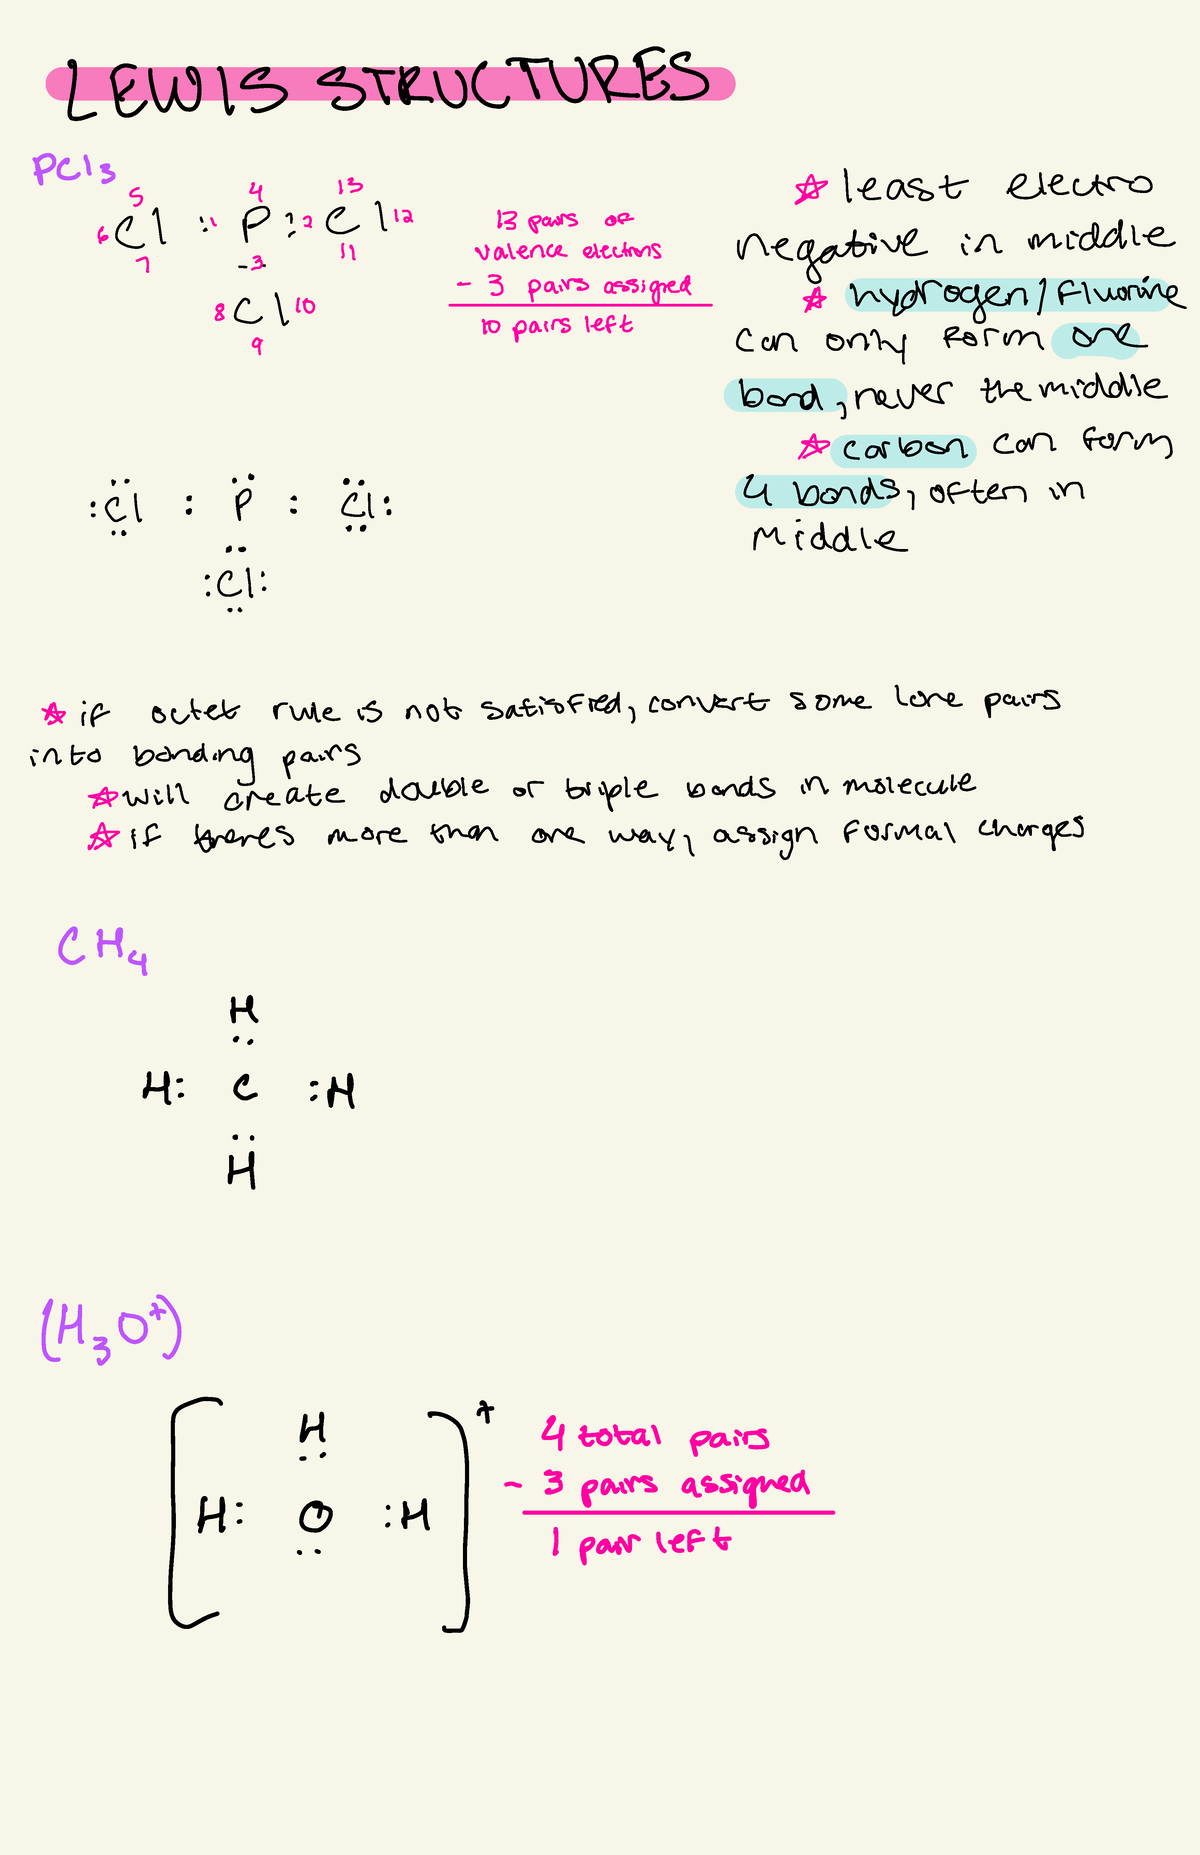 LEWIS STRUCTURES
PCl3
5 4 13
6 Cl :1 P :2 Cl 12
7 3 11
8 Cl 10
9
13 pairs of
valence electrons
- 3 pairs assigned
10 pairs left
☆ least electro
negative in middle
☆ hydrogen/Fluorine
can only form one
bond, never the middle
☆ carbon can form
4 bonds, often in
middle
:Cl : P : Cl:
:Cl:
☆ if octet rule is not satisfied, convert some lone pairs
into bonding pairs
☆ will create double or triple bonds in molecule
☆ if theres more than one way, assign formal charges
CH4
H
H: C :H
H
(H3O+)
H +
H: O :H
4 total pairs
- 3 pairs assigned
1 pair left